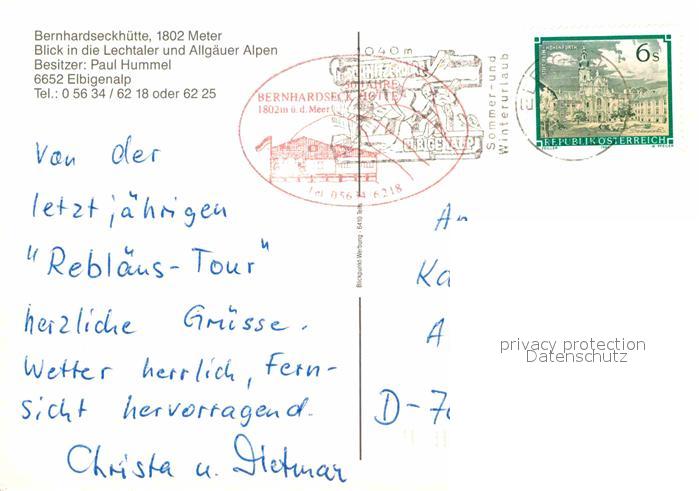 Bernhardseckhütte, 1802 Meter
Blick in die Lechtaler und Allgäuer Alpen
Besitzer: Paul Hummel
6652 Elbigenalp
Tel.: 0 56 34 / 62 18 oder 62 25
BERNHARDSECK HÜTTE
1802m ü.d.Meer
Tel. 05634 6218
1040m
ELBIGENALP
Sommer- und
Winterurlaub
6 S
REPUBLIK ÖSTERREICH
Von der
letztjährigen
"Rebläus-Tour"
herzliche Grüsse.
Wetter herrlich, Fern-
sicht hervorragend.
Christa u. Dietmar
Blickpunkt-Werbung · 6410 Telfs
An
Ka
A
D-7
privacy protection
Datenschutz